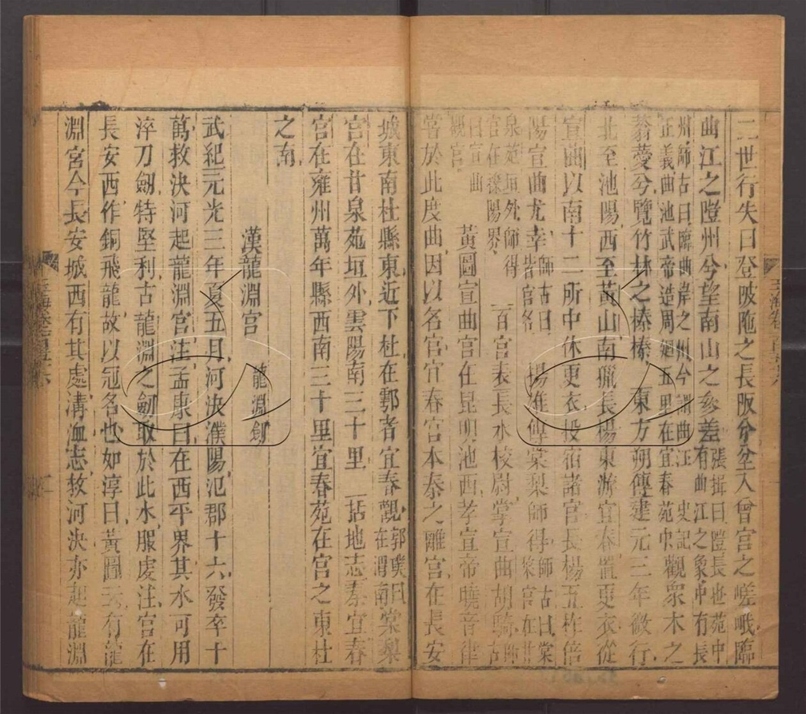 二世行失曰登陂陁之長阪兮坌入曾宮之嵯峨臨
曲江之隑州兮望南山之參差張揖曰隑長也苑中有曲江之象中有長
州師古曰臨曲岸之州今謂曲江 史記
正義曲池武帝造周廻五里在宜春苑中觀衆木之
蓊薆兮覽竹林之榛榛 東方朔傳建元三年微行
北至池陽西至黃山南獵長楊東游宜春置更衣從
宣曲以南十二所中休更衣投宿諸宮長楊五柞倍
陽宣曲尤幸師古曰皆宮名 揚雄傳棠梨師得師古曰棠梨宮在甘
泉苑垣外師得宮在櫟陽界 百官表長水校尉掌宣曲胡騎師古
曰宣曲觀名 黃圖宣曲宮在昆明池西孝宣帝曉音律
嘗於此度曲因以名宮宜春宮本秦之離宮在長安
城東南杜縣東近下杜在鄠者宜春觀郭璞曰在渭南棠梨
宮在甘泉苑垣外雲陽南三十里 括地志秦宜春
宮在雍州萬年縣西南三十里宜春苑在宮之東杜
之南
漢龍淵宮 龍淵劍
武紀元光三年夏五月河決濮陽氾郡十六發卒十
萬救決河起龍淵宮注孟康曰在西平界其水可用
淬刀劍特堅利古龍淵之劍取於此水服虔注宮在
長安西作銅飛龍故以冠名也如淳曰黃圖云有龍
淵宮今長安城西有其處溝洫志救河決亦起龍淵